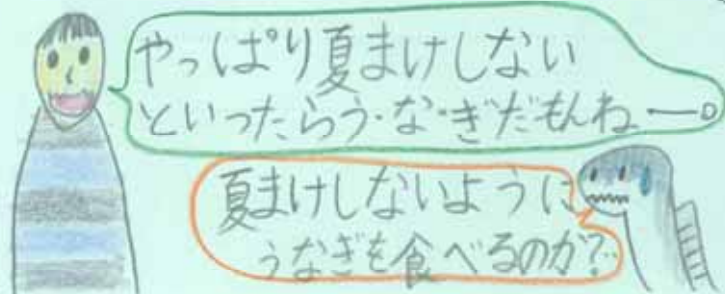 やっぱり夏まけしない
といったらう・な・ぎだもんねー。
夏まけしないように
うなぎを食べるのか?